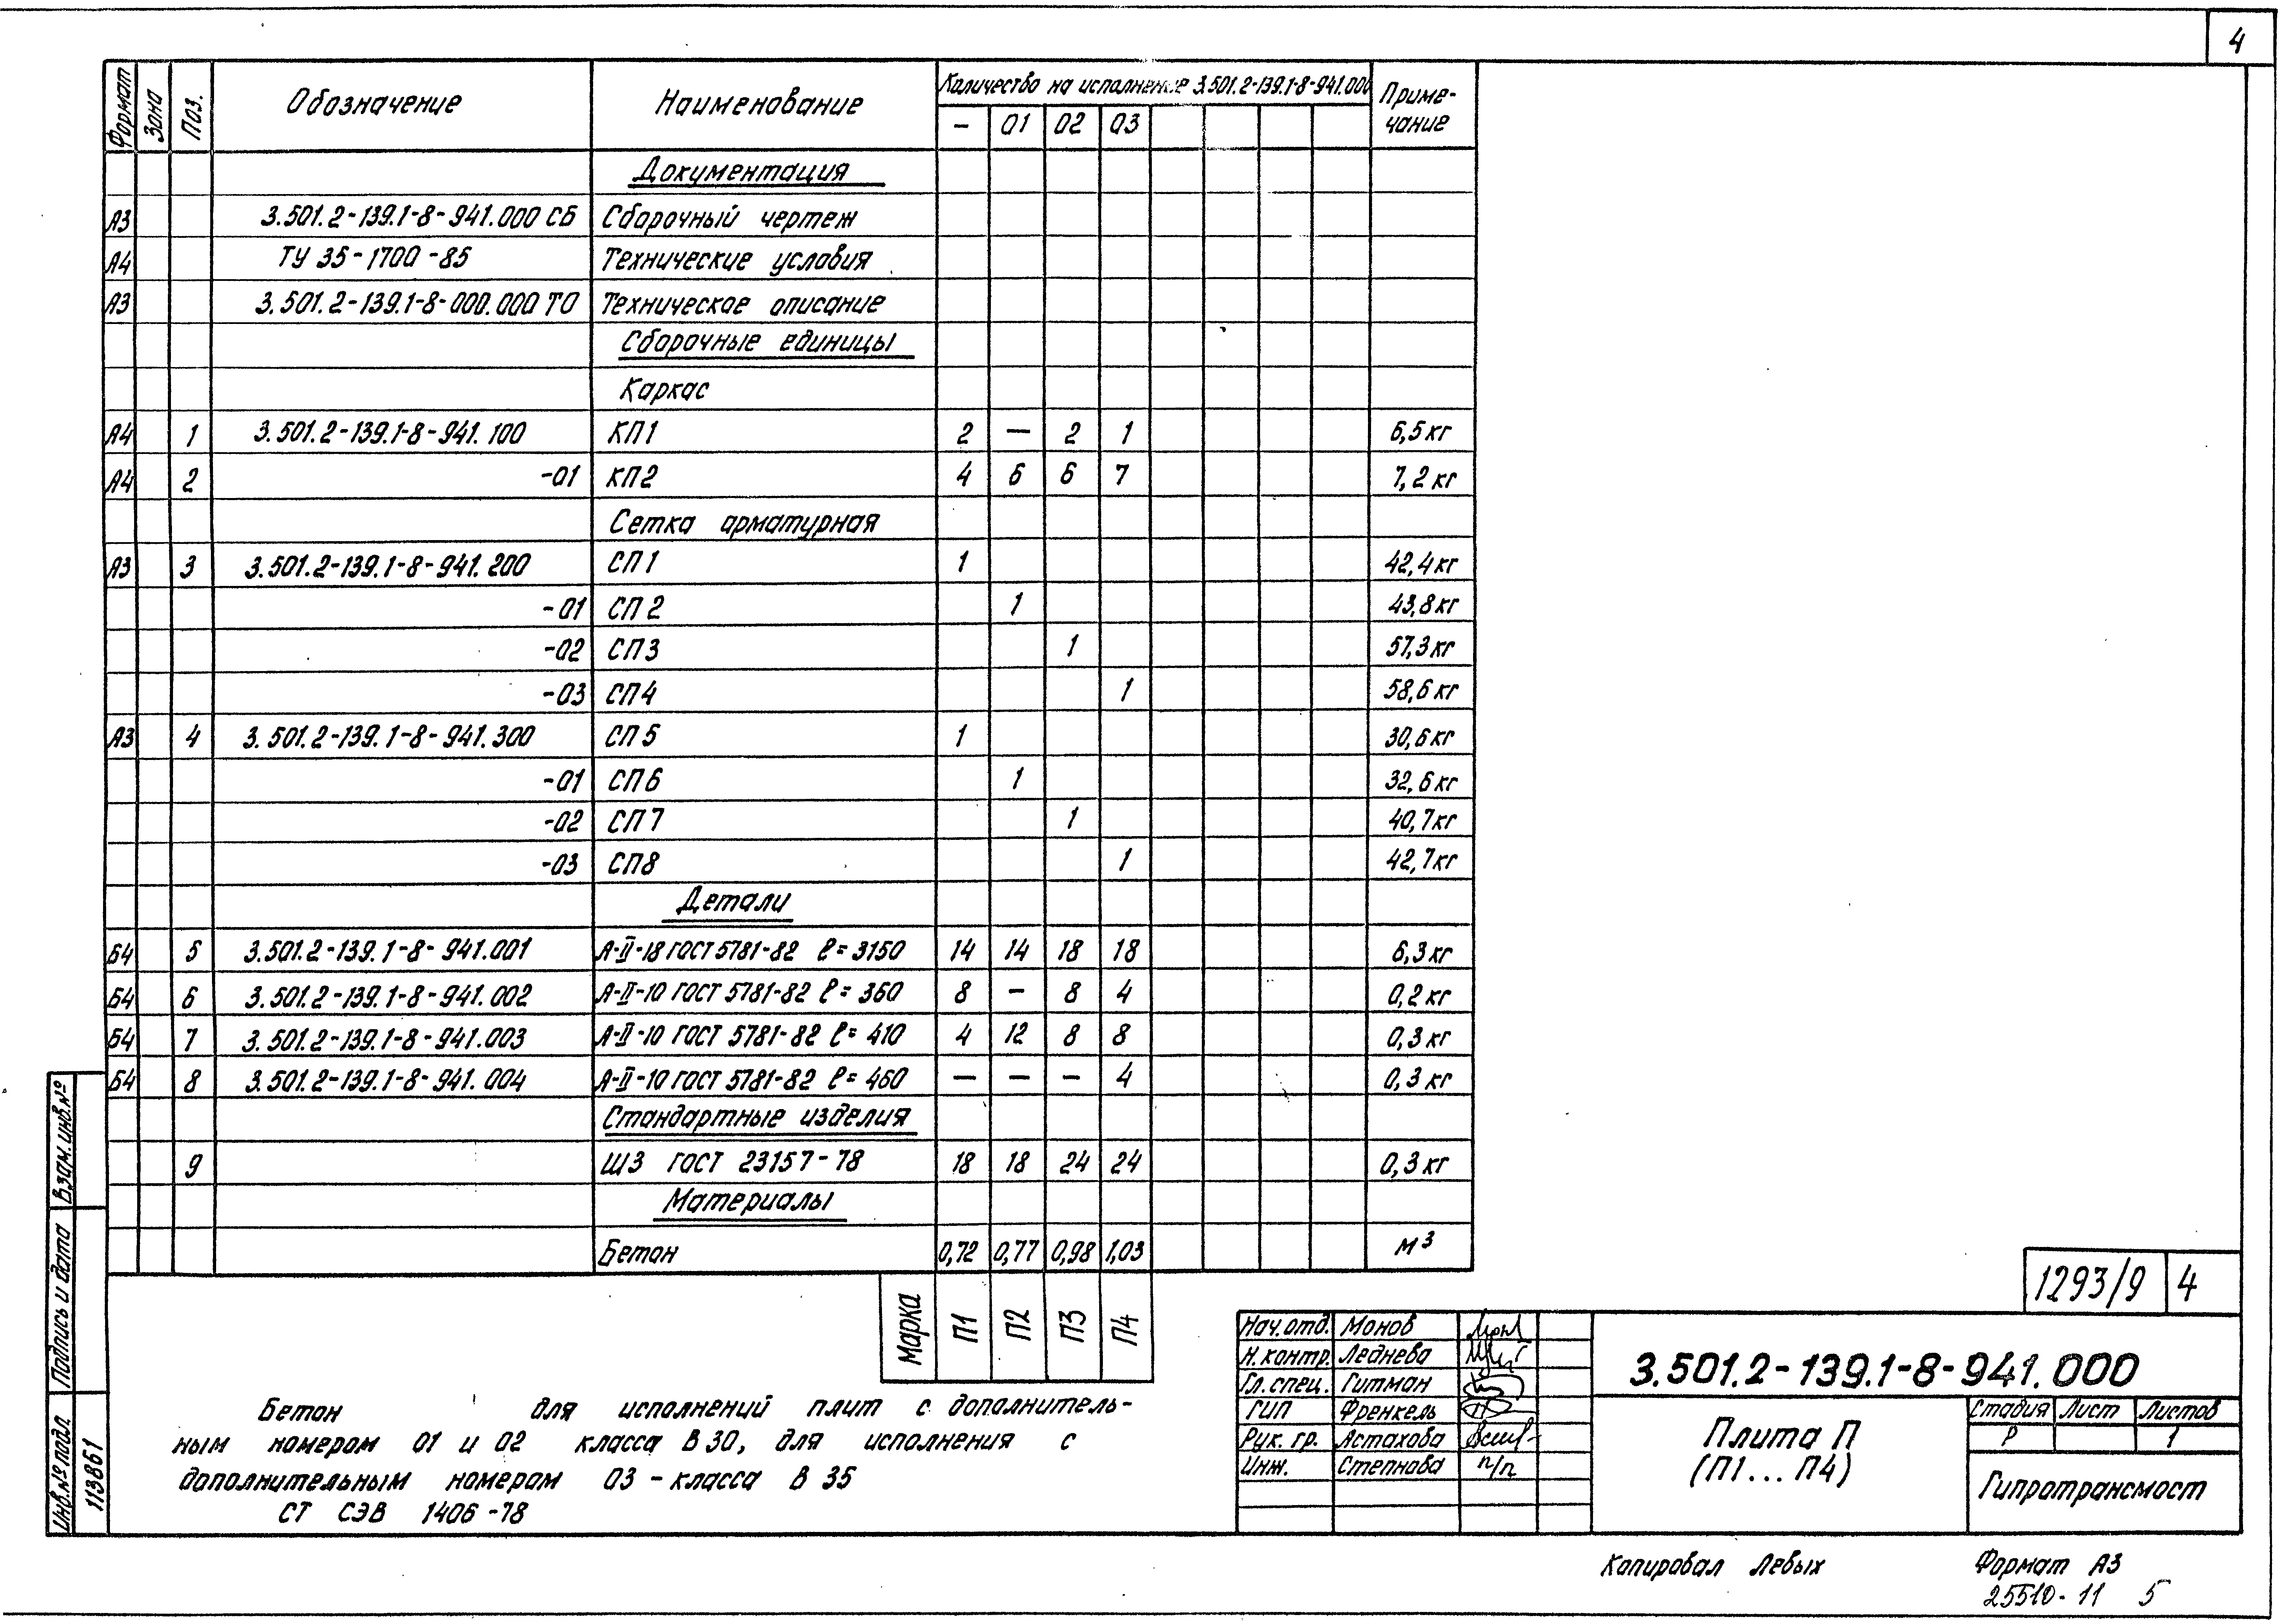 4
Формат Зона Поз. Обозначение Наименование Количество на исполнение 3.501.2-139.1-8-941.000 Приме-чание
- 01 02 03
Документация
А3 3.501.2-139.1-8-941.000 СБ Сборочный чертеж
А4 ТУ 35-1700-85 Технические условия
А3 3.501.2-139.1-8-000.000 ТО Техническое описание
Сборочные единицы
Каркас
А4 1 3.501.2-139.1-8-941.100 КП1 2 — 2 1 6,5 кг
А4 2 -01 КП2 4 6 6 7 7,2 кг
Сетка арматурная
А3 3 3.501.2-139.1-8-941.200 СП1 1 42,4 кг
-01 СП2 1 43,8 кг
-02 СП3 1 57,3 кг
-03 СП4 1 58,6 кг
А3 4 3.501.2-139.1-8-941.300 СП5 1 30,6 кг
-01 СП6 1 32,6 кг
-02 СП7 1 40,7 кг
-03 СП8 1 42,7 кг
Детали
Б4 5 3.501.2-139.1-8-941.001 А-II-18 ГОСТ 5781-82 ℓ=3150 14 14 18 18 6,3 кг
Б4 6 3.501.2-139.1-8-941.002 А-II-10 ГОСТ 5781-82 ℓ=360 8 — 8 4 0,2 кг
Б4 7 3.501.2-139.1-8-941.003 А-II-10 ГОСТ 5781-82 ℓ=410 4 12 8 8 0,3 кг
Б4 8 3.501.2-139.1-8-941.004 А-II-10 ГОСТ 5781-82 ℓ=460 — — — 4 0,3 кг
Стандартные изделия
9 Ш3 ГОСТ 23157-78 18 18 24 24 0,3 кг
Материалы
Бетон 0,72 0,77 0,98 1,03 м³
Марка П1 П2 П3 П4
Бетон для исполнений плит с дополнитель-
ным номером 01 и 02 класса В30, для исполнения с
дополнительным номером 03 - класса В 35
СТ СЭВ 1406-78
Взам.инв.№
Подпись и дата
Инв.№ подл. 113861
1293/9 4
Нач.отд. Монов
Н.контр. Леднева
Гл.спец. Гитман
ГИП Френкель
Рук. гр. Астахова
Инж. Степнова п/п
3.501.2-139.1-8-941.000
Плита П
(П1...П4)
Стадия Лист Листов
Р 1
Гипротрансмост
Копировал Левых Формат А3
25510-11 5